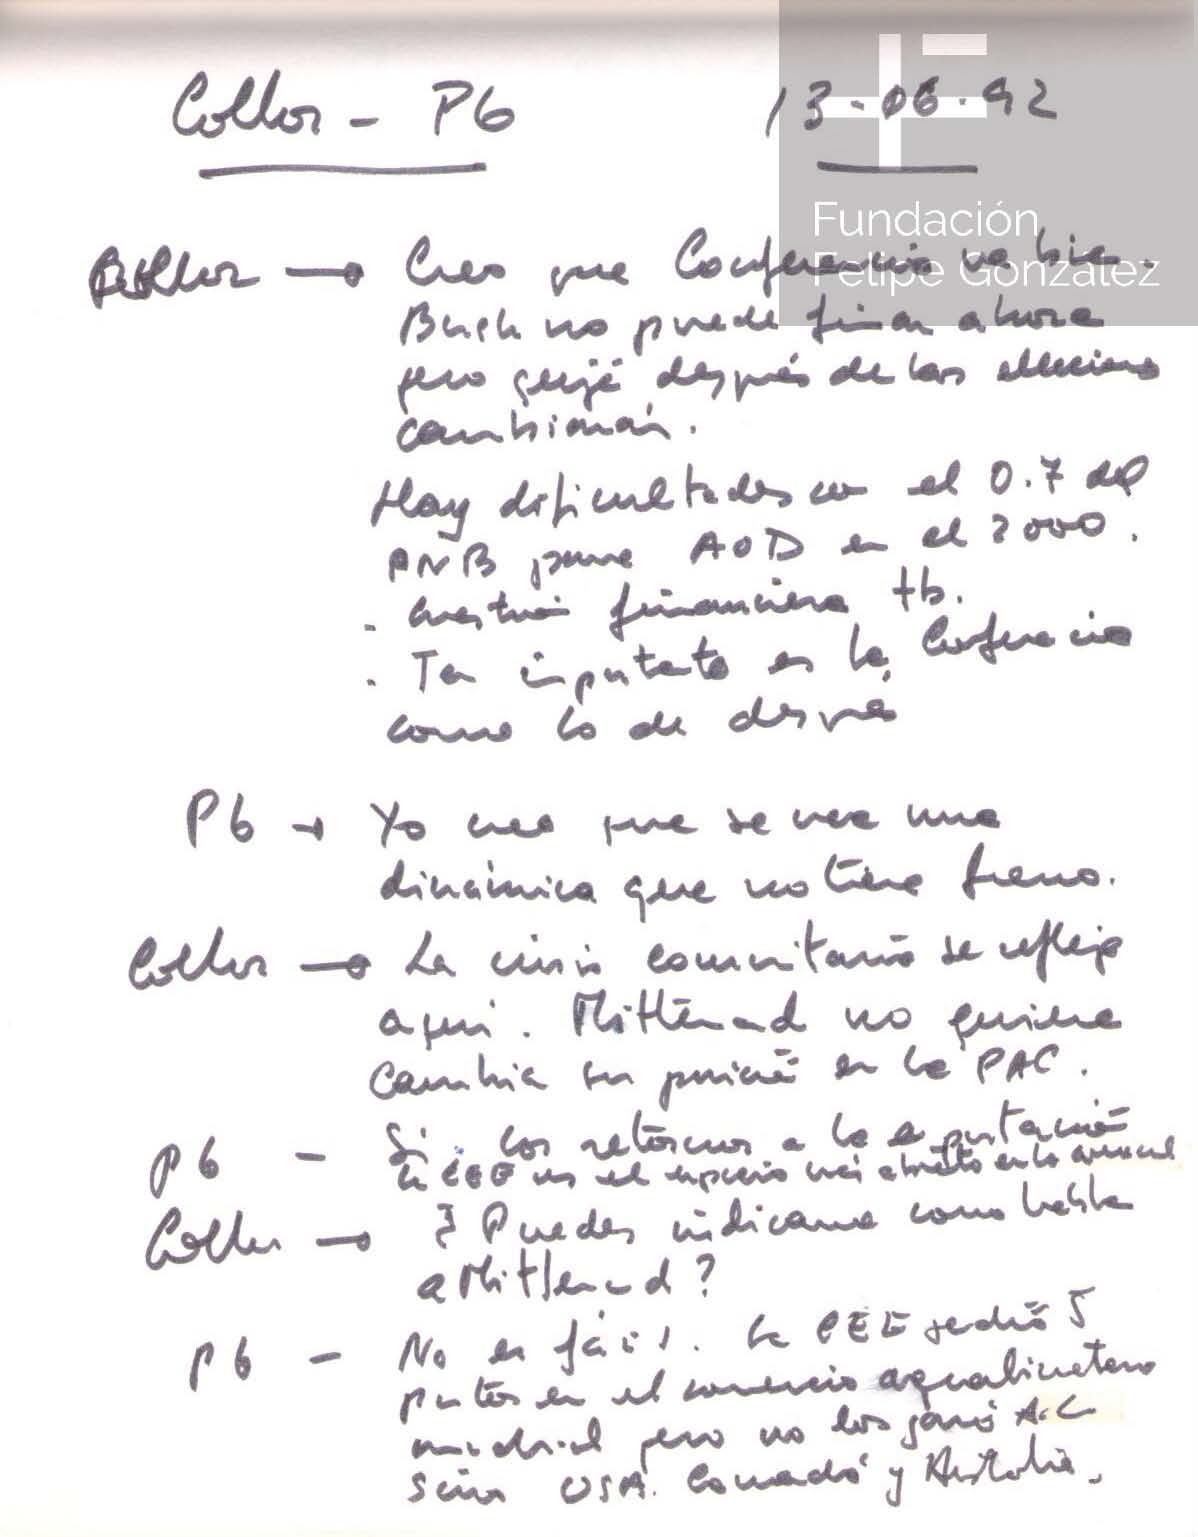 Collor - PG 13.06.92
Fundación
Felipe González
Collor → Creo que Conferencia va bien.
Bush no puede firmar ahora
pero quizá después de las elecciones
cambiarán.
Hay dificultades con el 0.7 del
PNB para AOD en el 2000.
. Cuestión financiera tb.
. Tan importante es la Conferencia
como lo de después
PG → Yo creo que se crea una
dinámica que no tiene freno.
Collor → La crisis comunitaria se refleja
aquí. Mitterrand no quiere
cambiar su posición en la PAC.
PG - Si. los retornos a la exportación
la CEE es el espacio más abierto en lo
Collor → ¿Puedes indicarme como hablar
a Mitterrand?
PG - No es fácil. La CEE perdió 5
puntos en el comercio
mundial pero no los ganó A.L
sino USA. Canadá y Australia.